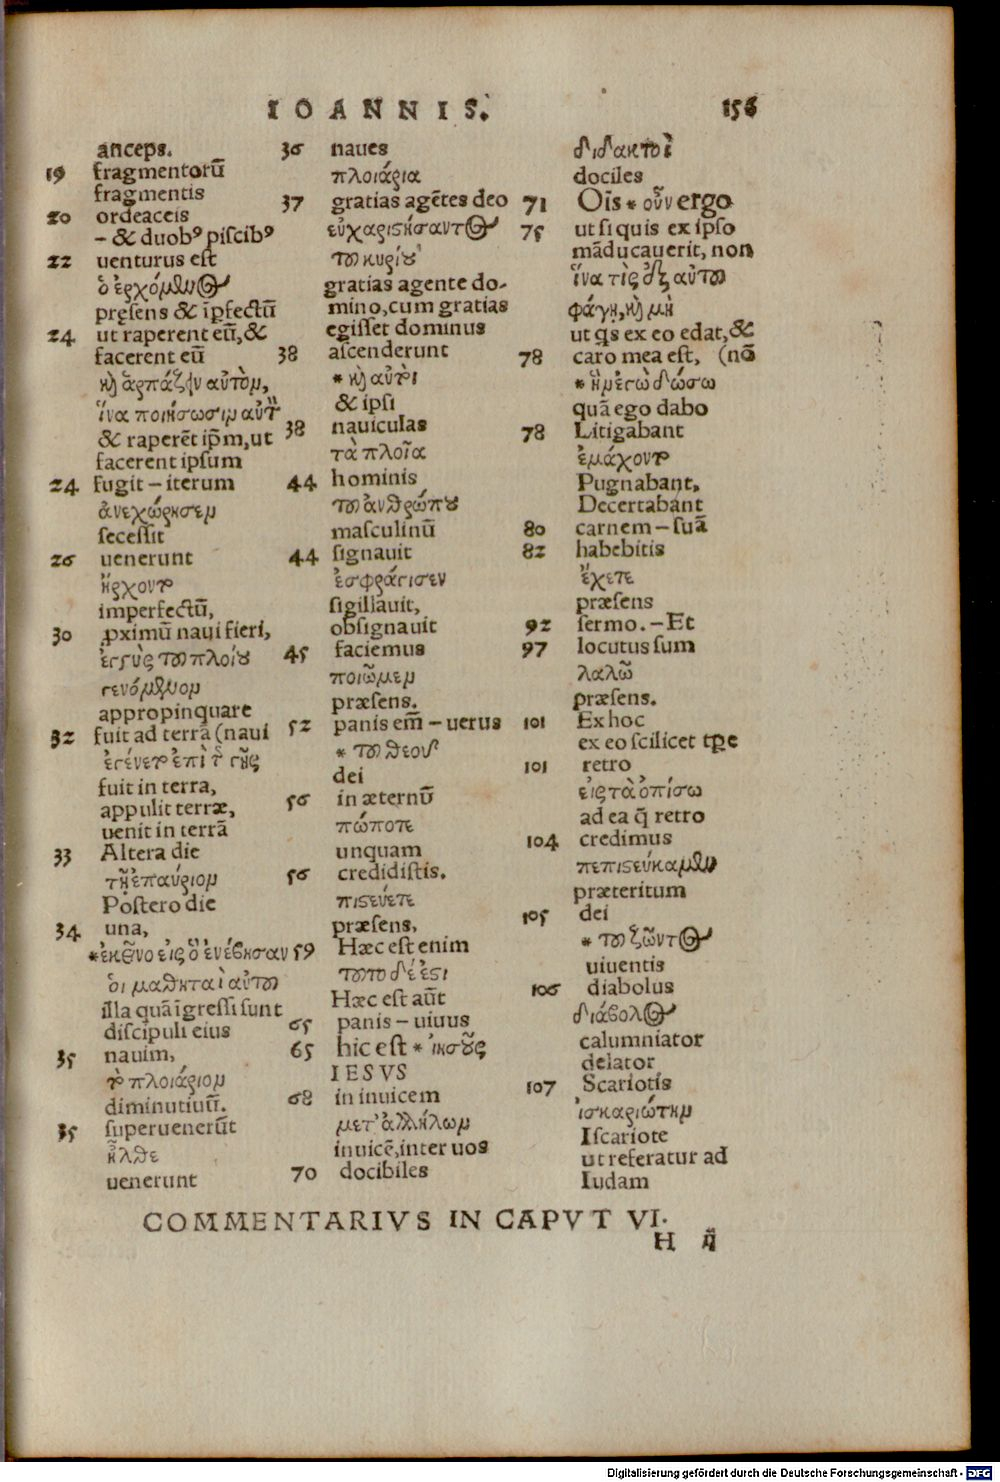 IOANNIS.
156
anceps.
19 fragmentorū
fragmentis
20 ordeaceis
– & duobꝰ piscibꝰ
22 uenturus est
ὁ ἐρχόμενος
pręsens & īpfectū
24 ut raperent eū, &
facerent eū
καὶ ἁρπάζειν αὐτὸμ,
ἵνα ποιήσωσιμ αὐτὸν
& raperēt ip̄m, ut
facerent ipsum
24 fugit – iterum
ἀνεχώρησεμ
secessit
26 uenerunt
ἤρχοντο
imperfectū,
30 ꝓximū naui fieri,
ἐγγὺς τοῦ πλοίου
γενόμενομ
appropinquare
32 fuit ad terrā (naui
ἐγένετο ἐπὶ τῆς γῆς
fuit in terra,
appulit terræ,
uenit in terrā
33 Altera die
τῇ ἐπαύριομ
Postero die
34 una,
*ἐκεῖνο εἰς ὃ ἐνέβησαν
ὁι μαθηταὶ αὐτοῦ
illa quā īgressi sunt
discipuli eius
35 nauim,
τὸ πλοιάριομ
diminutiuū.
35 superuenerūt
ἦλθε
uenerunt
36 naues
πλοιάρια
37 gratias agētes deo
εὐχαριστήσαντος
τοῦ κυρίου
gratias agente do-
mino, cum gratias
egisset dominus
38 ascenderunt
* καὶ αὐτοὶ
& ipsi
38 nauiculas
τὰ πλοῖα
44 hominis
τοῦ ἀνθρώπου
masculinū
44 signauit
ἐσφράγισεν
sigillauit,
obsignauit
45 faciemus
ποιῶμεμ
præsens.
52 panis em̄ – uerus
* τοῦ θεοῦ
dei
56 in æternū
πώποτε
unquam
56 credidistis.
πιστεύετε
præsens,
59 Hæc est enim
τοῦτο δέ ἐστι
Hæc est aūt
65 panis – uiuus
65 hic est * ἰησοῦς
IESVS
68 in inuicem
μετ' ἀλλήλωμ
inuicē, inter uos
70 docibiles
διδακτοὶ
dociles
71 Oīs * οὖν ergo
75 ut si quis ex ipso
māducauerit, non
ἵνα τὶς ἐξ αὐτοῦ
φάγῃ, καὶ μὴ
ut qs ex eo edat, &
78 caro mea est, (nō
* ἣμ ἐγὼ δώσω
quā ego dabo
78 Litigabant
ἐμάχοντο
Pugnabant,
Decertabant
80 carnem – suā
82 habebitis
ἔχετε
præsens
92 sermo. – Et
97 locutus sum
λαλῶ
præsens.
101 Ex hoc
ex eo scilicet tp̄e
101 retro
εἰς τὰ ὀπίσω
ad ea q̄ retro
104 credimus
πεπιστεύκαμεν
præteritum
105 dei
* τοῦ ζῶντος
uiuentis
106 diabolus
διάβολος
calumniator
delator
107 Scariotis
ἰσκαριώτημ
Iscariote
ut referatur ad
Iudam
COMMENTARIVS IN CAPVT VI.
H ij
Digitalisierung gefördert durch die Deutsche Forschungsgemeinschaft - DFG